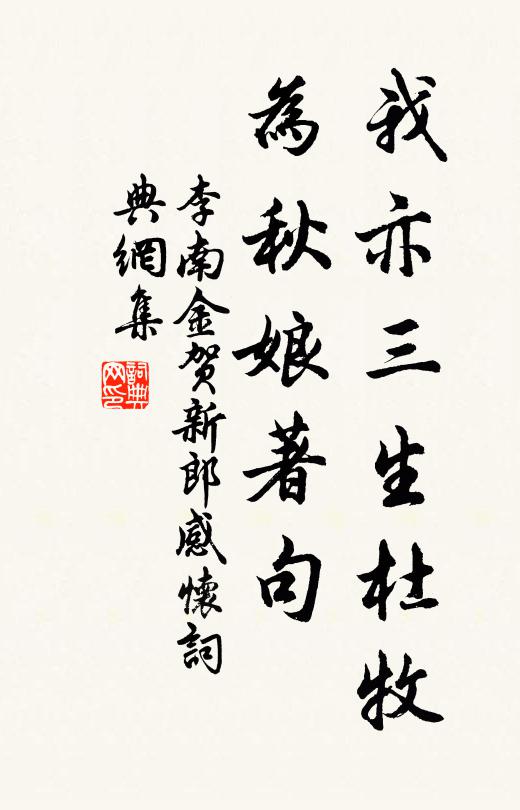 我亦三生杜牧
為秋娘著句
李南金賀新郎感懷詞
典網集
詞典
网印